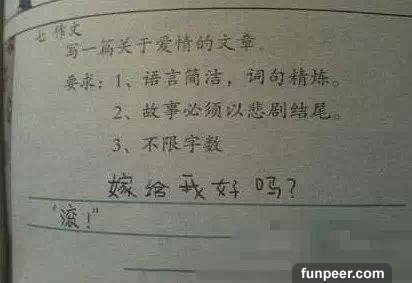 七 作文
写一篇关于爱情的文章。
要求：1、语言简洁，词句精炼。
2、故事必须以悲剧结尾。
3、不限字数
嫁给我好吗？
“滚！”
funpeer.com